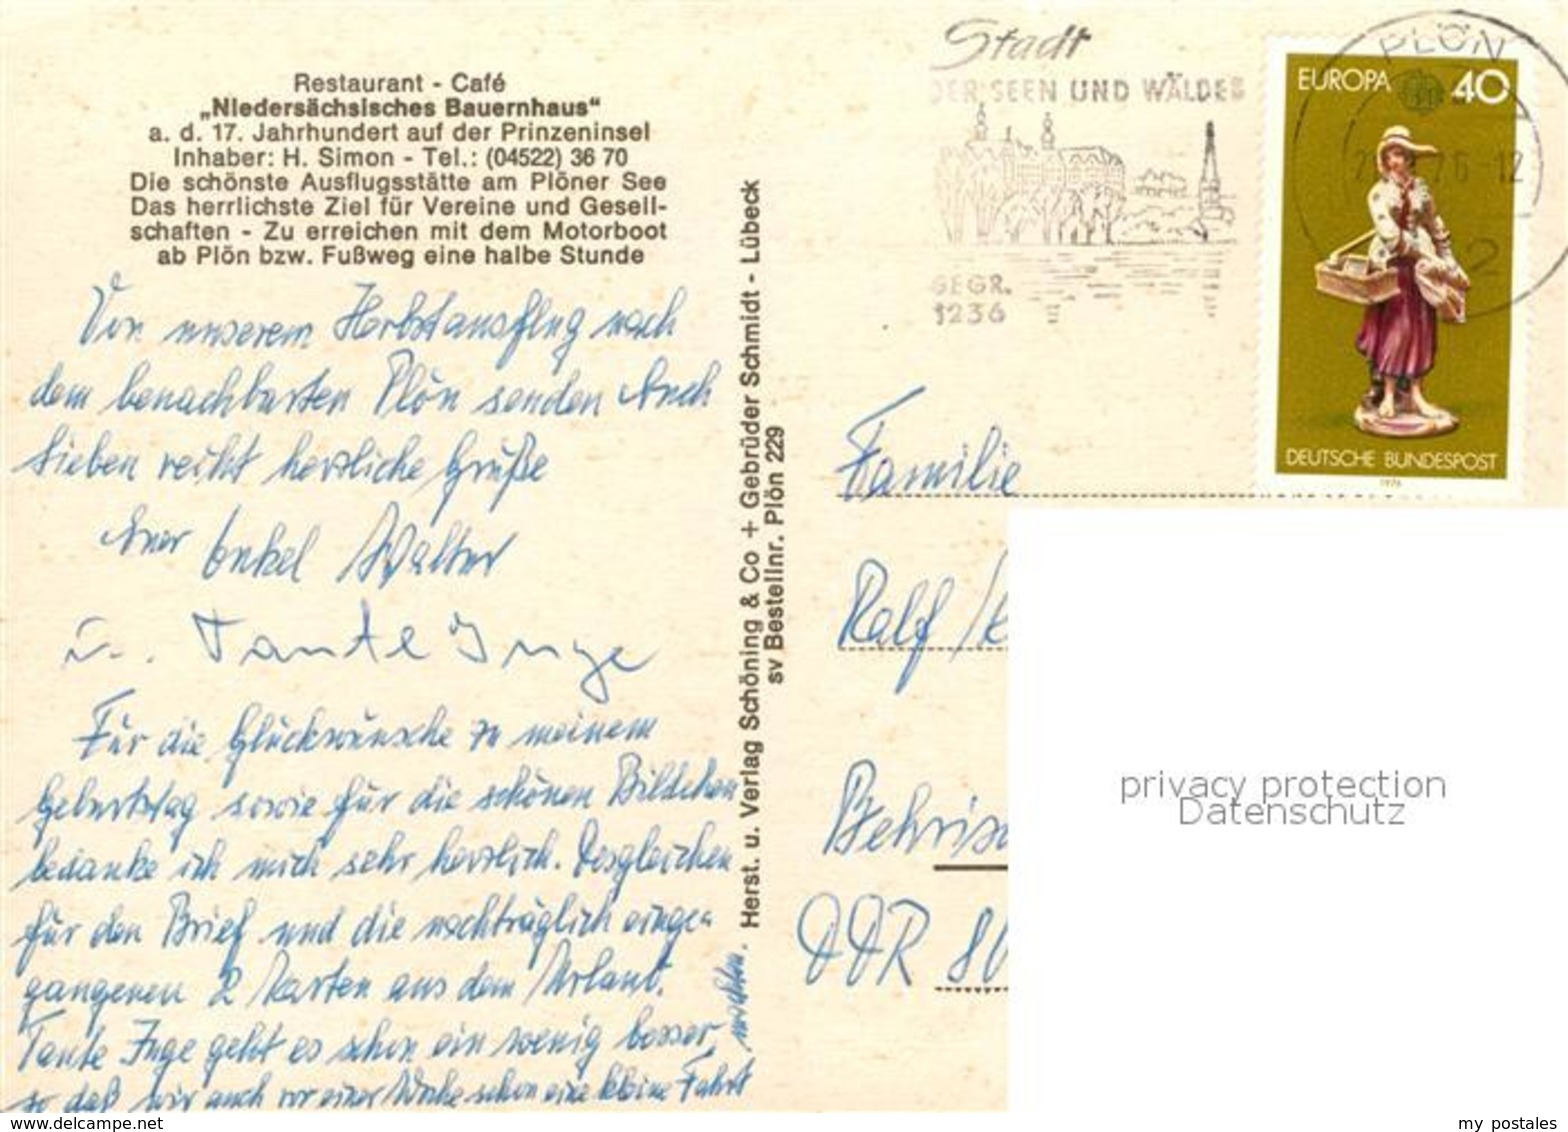 Restaurant - Café
„Niedersächsisches Bauernhaus“
a. d. 17. Jahrhundert auf der Prinzeninsel
Inhaber: H. Simon - Tel.: (04522) 36 70
Die schönste Ausflugsstätte am Plöner See
Das herrlichste Ziel für Vereine und Gesell-
schaften - Zu erreichen mit dem Motorboot
ab Plön bzw. Fußweg eine halbe Stunde
Von unserem Herbstausflug nach
dem benachbarten Plön senden Euch
Lieben recht herzliche Grüße
Euer Onkel Walter
u. Tante Inge
Für die Glückwünsche zu meinem
Geburtstag sowie für die schönen Bildchen
bedanke ich mich sehr herzlich. Desgleichen
für den Brief und die nachträglich einge-
gangenen 2 Karten aus dem Urlaub.
Tante Inge geht es schon ein wenig besser,
so daß wir auch vor einer Woche schon eine kleine Fahrt
machten.
Herst. u. Verlag Schöning & Co + Gebrüder Schmidt - Lübeck
sv Bestellnr. Plön 229
Stadt
DER SEEN UND WÄLDER
GEGR.
1236
PLÖN
76-12
2
EUROPA 40
DEUTSCHE BUNDESPOST
1976
Familie
Ralf
DDR 80
privacy protection
Datenschutz
delcampe.net
my_postales